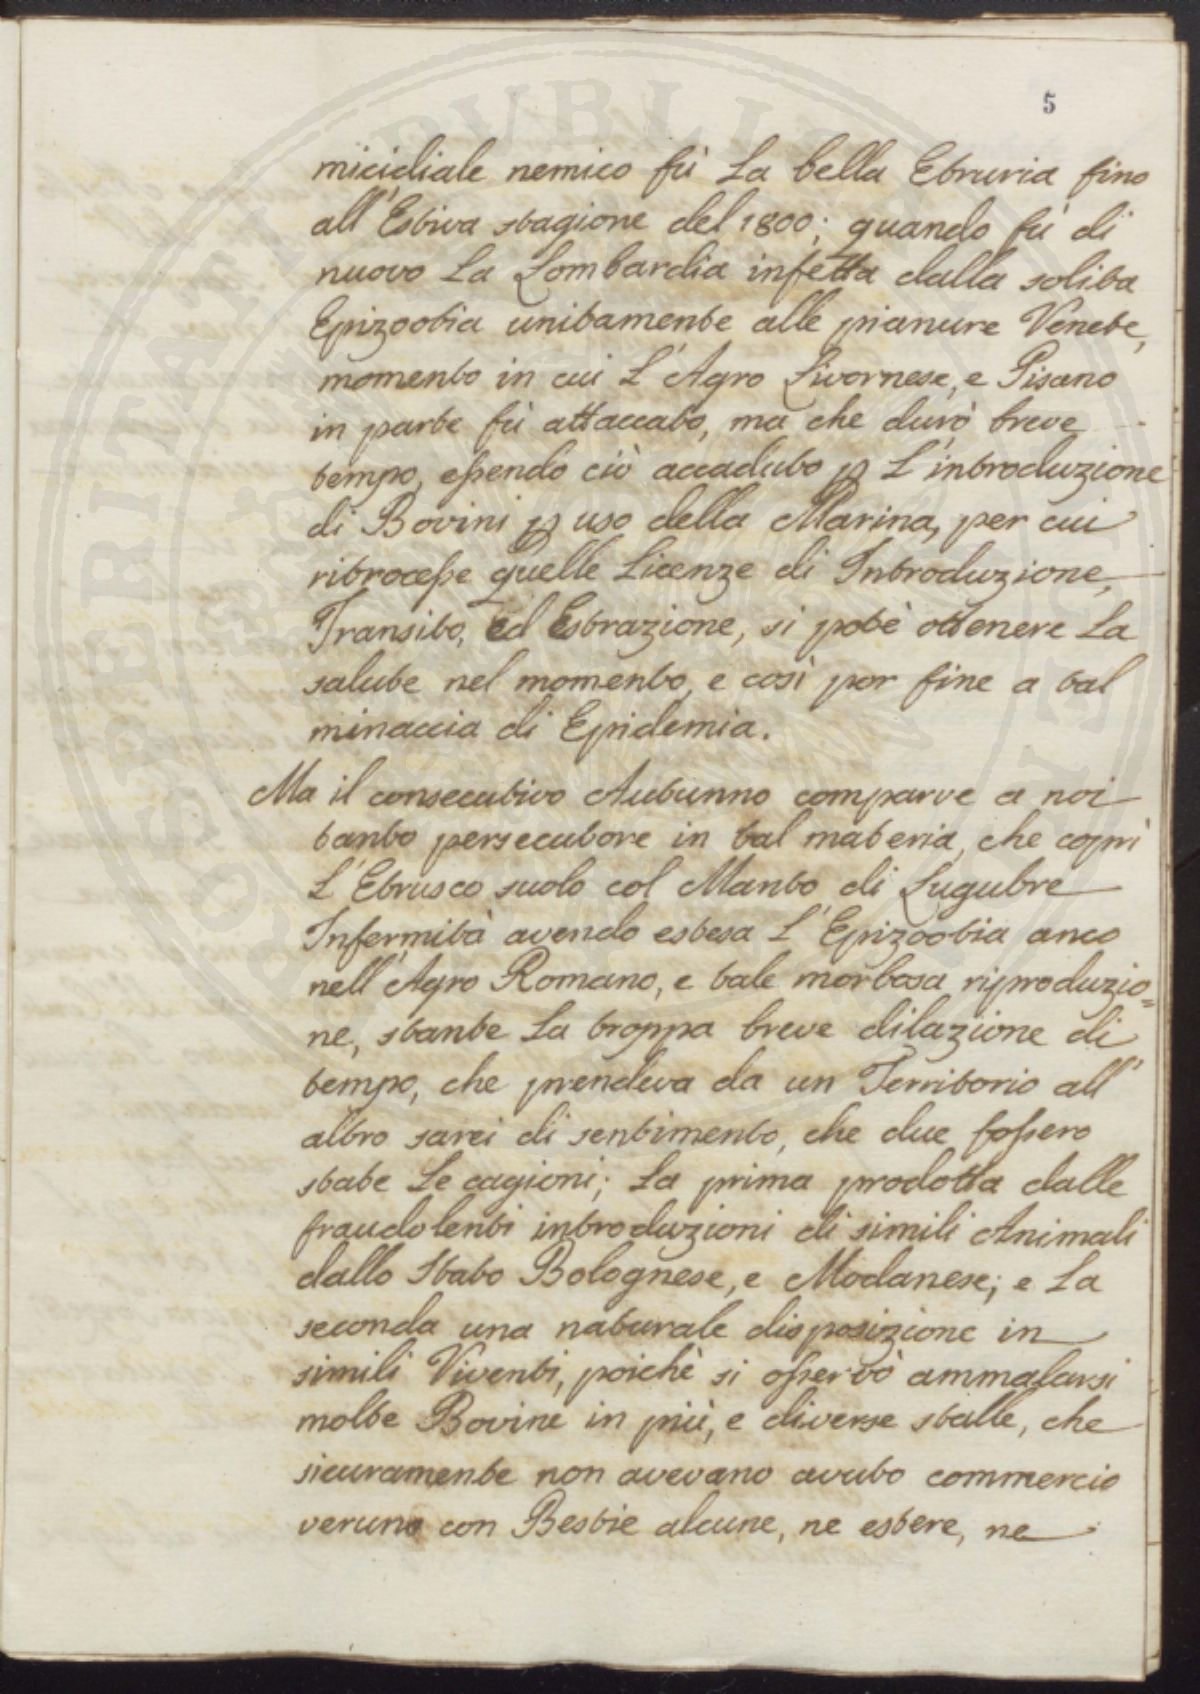 5
micidiale nemico fù La bella Etruria fino
all'Estiva stagione del 1800; quando fù di
nuovo La Lombardia infetta dalla solita
Epizootia unitamente alle pianure Venete,
momento in cui L'Agro Livornese, e Pisano
in parte fù attaccato, ma che durò breve
tempo, essendo ciò accaduto p L'introduzione
di Bovini p uso della Marina, per cui
ritrocesse quelle Licenze di Introduzione,
Transito, ed Estrazione, si potè ottenere La
salute nel momento, e così por fine a tal
minaccia di Epidemia.
Ma il consecutivo Autunno comparve a noi
tanto persecutore in tal materia, che coprì
L'Etrusco suolo col Manto di Lugubre
Infermità avendo estesa L'Epizootia anco
nell'Agro Romano, e tale morbosa riproduzio=
ne, stante La troppa breve dilazione di
tempo, che prendeva da un Territorio all'
altro sarei di sentimento, che due fossero
state Le cagioni; La prima prodotta dalle
fraudolenti introduzioni di simili Animali
dallo Stato Bolognese, e Modanese; e La
seconda una naturale disposizione in
simili Viventi, poichè si osservò ammalarsi
molte Bovine in più, e diverse stalle, che
sicuramente non avevano avuto commercio
veruno con Bestie alcune, ne estere, ne
PROSPERITATI PUBLICAE